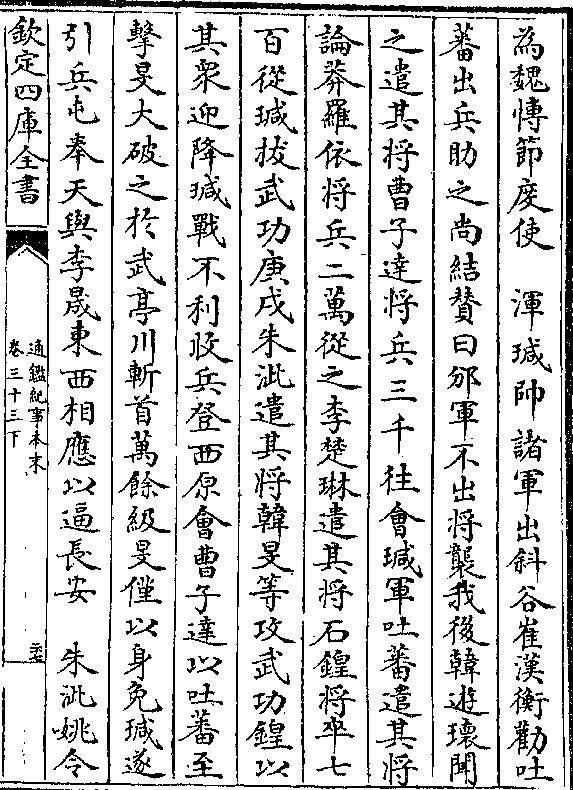 為魏博節度使　渾瑊帥諸軍出斜谷崔漢衡勸吐
蕃出兵助之尚結贊曰邠軍不出將襲我後韓遊瓌聞
之遣其將曹子達將兵三千往會瑊軍吐蕃遣其將
論莽羅依將兵二萬從之李楚琳遣其將石鍠將卒七
百從瑊拔武功庚戌朱泚遣其將韓旻等攻武功鍠以
其衆迎降瑊戰不利收兵登西原會曹子達以吐蕃至
擊旻大破之於武亭川斬首萬餘級旻僅以身免瑊遂
引兵屯奉天與李晟東西相應以逼長安　朱泚姚令
欽定四庫全書
通鑑紀事本末
卷三十三下